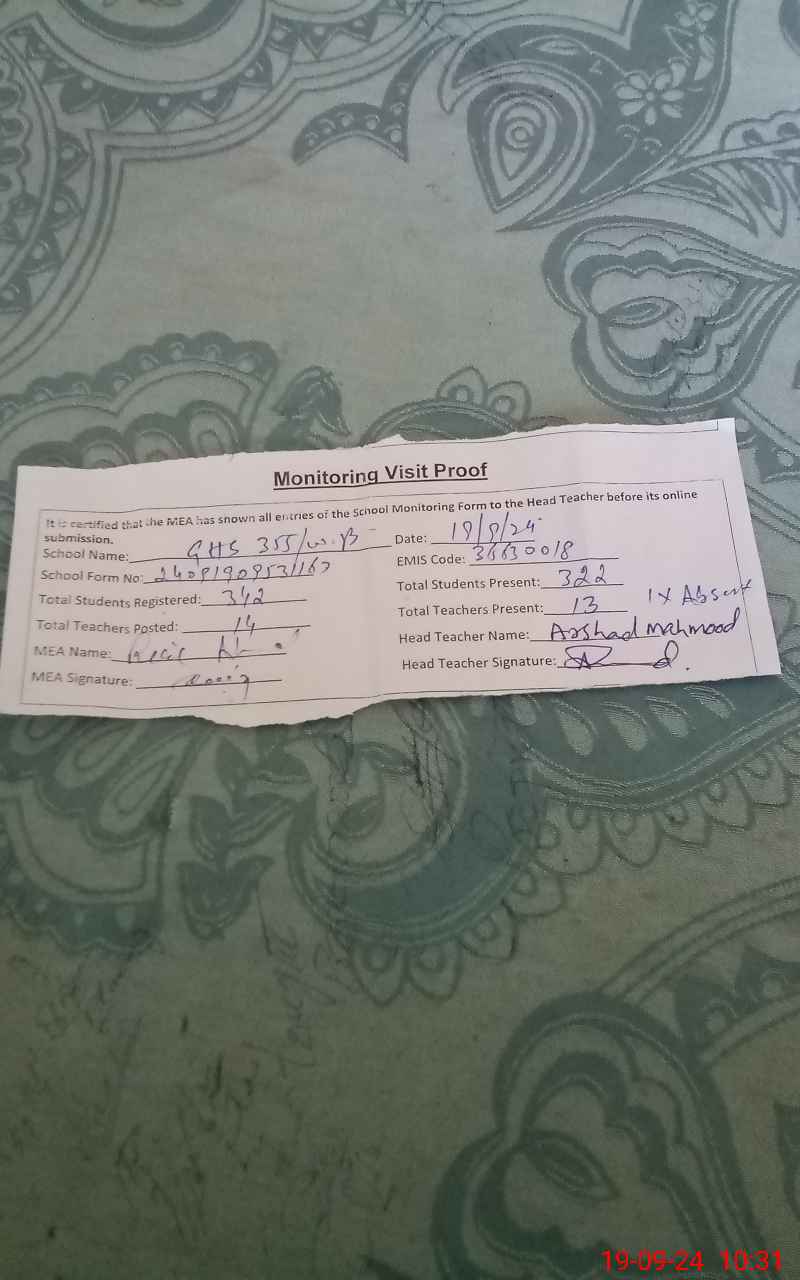 Monitoring Visit Proof
It is certified that the MEA has shown all entries of the School Monitoring Form to the Head Teacher before its online
submission.
School Name: GHS 355/W.B Date: 19/9/24
School Form No: EMIS Code: 36630018
Total Students Registered: 342 Total Students Present: 322
Total Teachers Posted: 14 Total Teachers Present: 13 1x Absent
MEA Name: Head Teacher Name: Arshad Mahmood
MEA Signature: Head Teacher Signature:
19-09-24 10:31